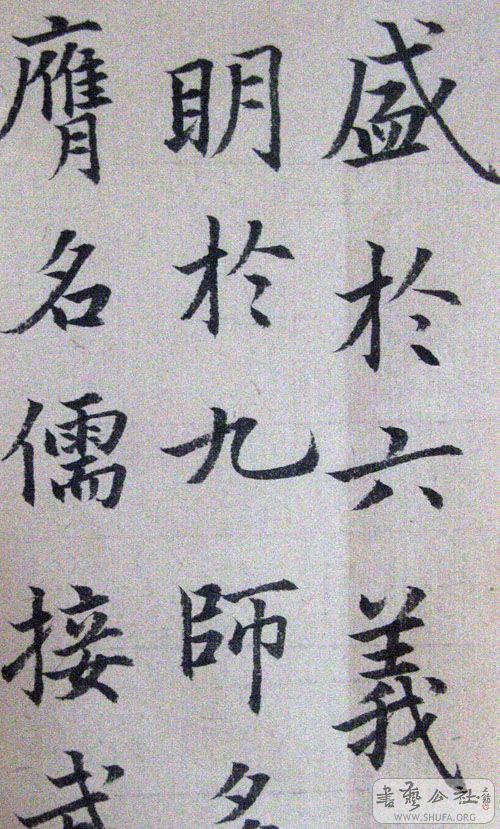 盛於六義
明於九師
膺名儒接武
書藝公社
WWW.SHUFA.ORG